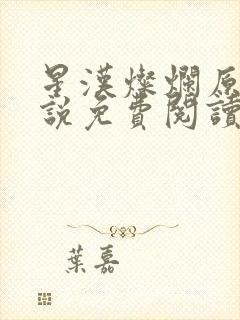 星漢燦爛原
說免費閱讀
葉嘉